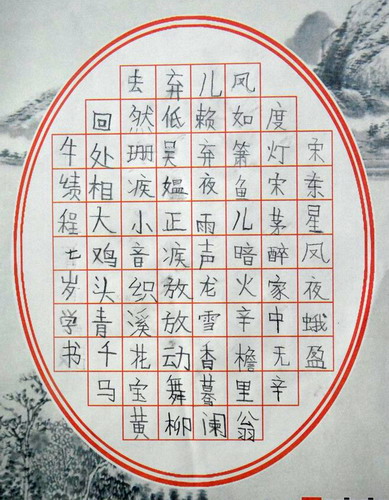 去弃儿凤
回然低赖如度
牛处珊吴弃箫灯宋
绩相疾媪夜鱼宋东
程大小正雨儿茅星
七鸡音疾声暗醉凤
岁头织放龙火家夜
学青溪放雪辛中蛾
书千花动香檐无盈
马宝舞蓦里辛
黄柳阑翁